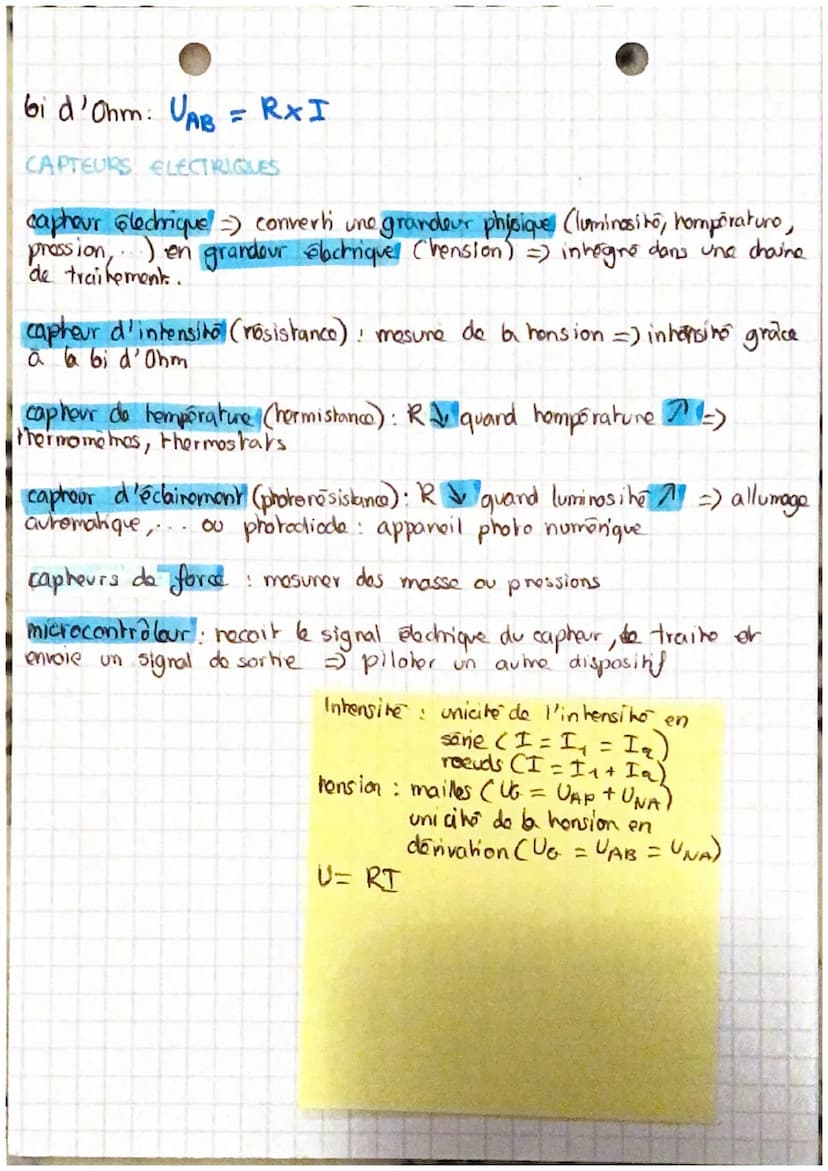 loi d'Ohm: UAB = R×I
CAPTEURS ELECTRIQUES
capteur électrique => converti une grandeur physique (luminosité, température,
pression, ...) en grandeur électrique (tension) => intégré dans une chaine
de traitement.
capteur d'intensité (résistance) : mesure de la tension => intensité grâce
à la loi d'Ohm
capteur de température (thermistance) : R ↓ quand température ↗ =>
thermomètres, thermostats
capteur d'éclairement (photorésistance) : R ↓ quand luminosité ↗ => allumage
automatique, ... ou photodiode : appareil photo numérique
capteurs de force : mesurer des masse ou pressions
microcontrôleur : reçoit le signal électrique du capteur, le traite et
envoie un signal de sortie => piloter un autre dispositif
Intensité : unicité de l'intensité en
série (I = I1 = I2)
noeuds (I = I1 + I2)
tension : mailles (UG = UAP + UNA)
unicité de la tension en
dérivation (UG = UAB = UNA)
U = RI